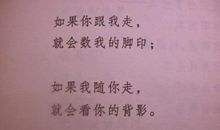 如果你跟我走，
就会数我的脚印；
如果我随你走，
就会看你的背影。